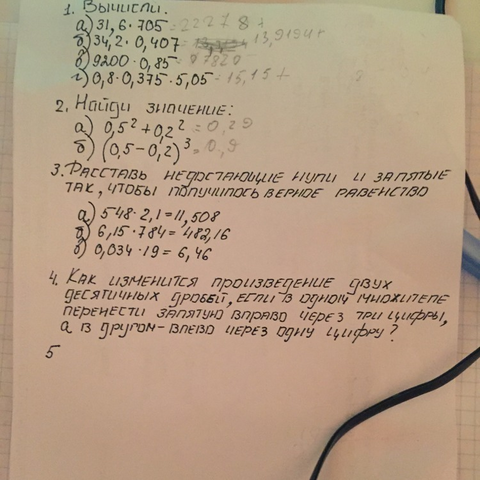 1. Вычисли.
а) 31,6 · 705 = 22278 +
б) 34,2 · 0,407 = 13,9194 +
в) 9200 · 0,85 = 7820
г) 0,8 · 0,375 · 5,05 = 15,15 +
2. Найди значение:
а) 0,5² + 0,2² = 0,29
б) (0,5 - 0,2)³ = 0,9
3. Расставь недостающие нули и запятые
так, чтобы получилось верное равенство
а) 548 · 2,1 = 11,508
б) 6,15 · 784 = 482,16
в) 0,034 · 19 = 6,46
4. Как изменится произведение двух
десятичных дробей, если в одном множителе
перенести запятую вправо через три цифры,
а в другом - влево через одну цифру?
5